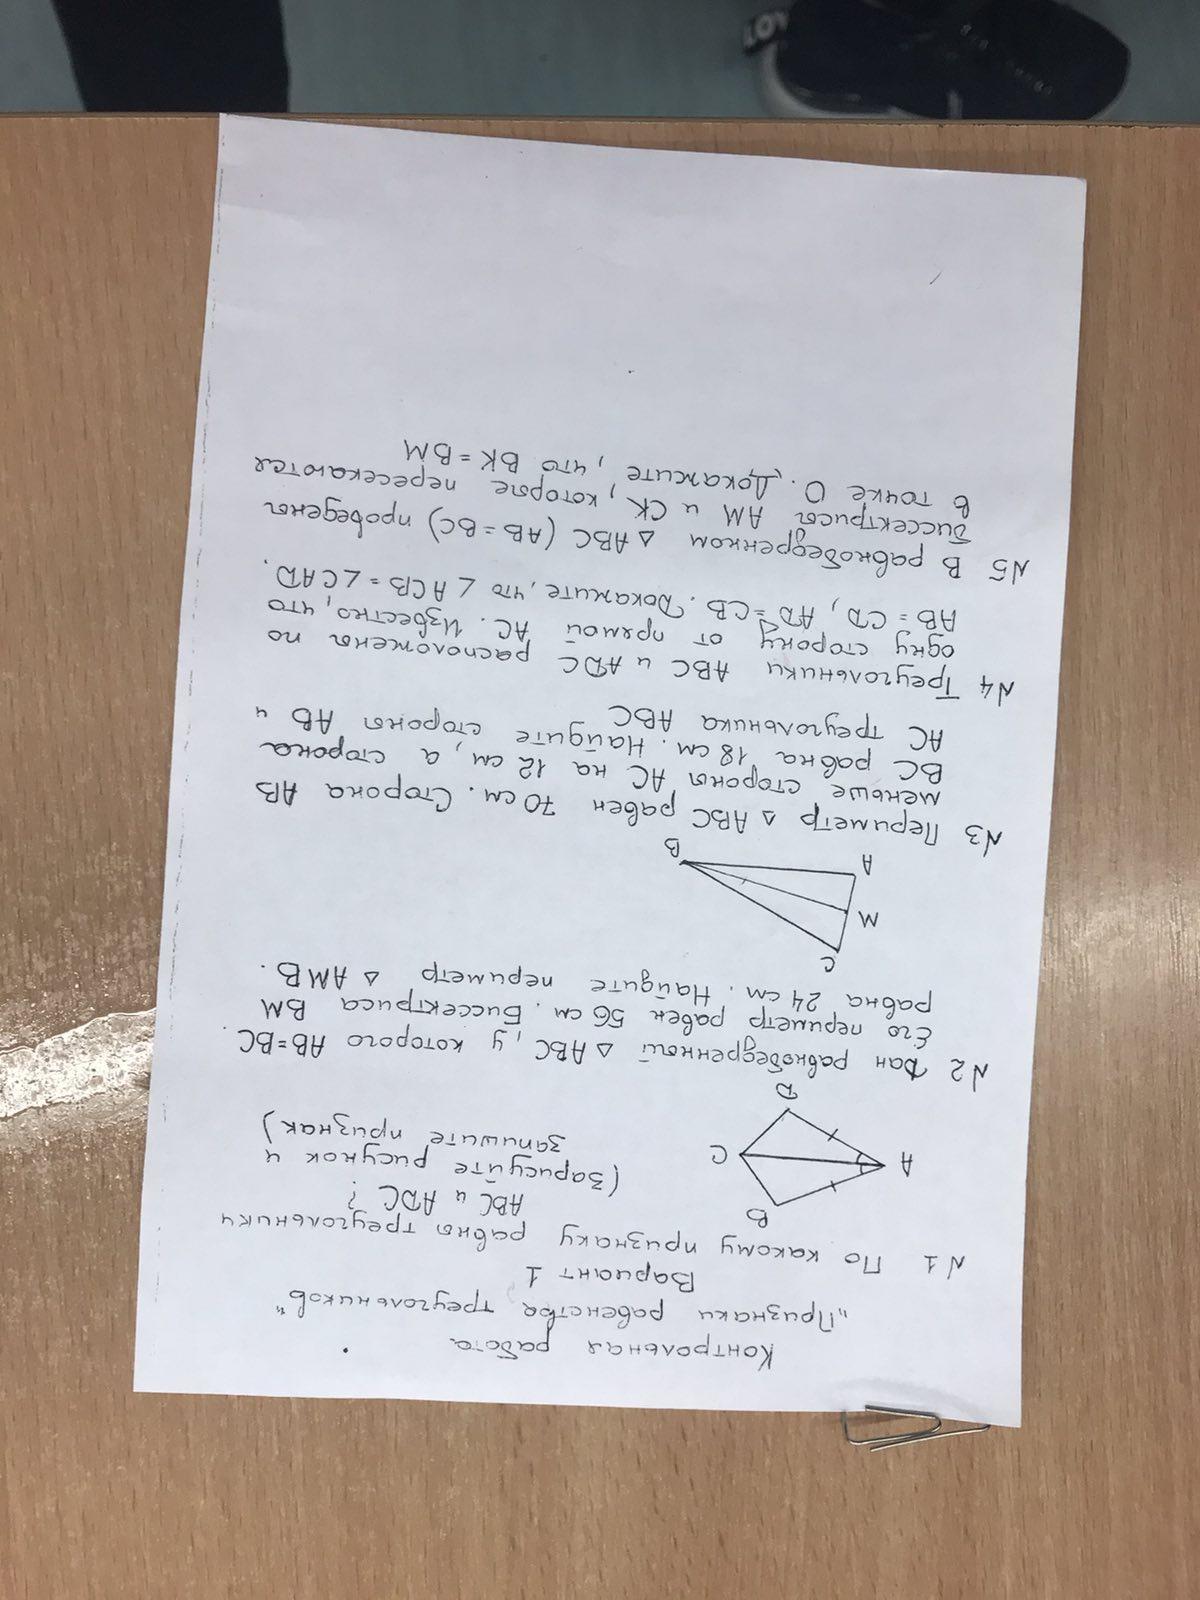 Контрольная работа
"Признаки равенства треугольников"
Вариант 1
№1 По какому признаку равны треугольники
ABC и ADC ?
(Зарисуйте рисунок и
запишите признак)
B
A
C
D
№2 Дан равнобедренной △ ABC, у которого AB=BC.
Его периметр равен 56 см. Биссектриса BM
равна 24 см. Найдите периметр △ AMB.
C
M
A
B
№3 Периметр △ ABC равен 70 см. Сторона AB
меньше стороны AC на 12 см, а сторона
BC равна 18 см. Найдите стороны AB и
AC треугольника ABC
№4 Треугольники ABC и ADC расположены по
одну сторону от прямой AC. Известно, что
AB = CD, AD = CB. Докажите, что ∠ACB = ∠CAD.
№5 В равнобедренном △ ABC (AB = BC) проведены
биссектрисы AM и CK, которые пересекаются
в точке O. Докажите, что BK = BM
LOV